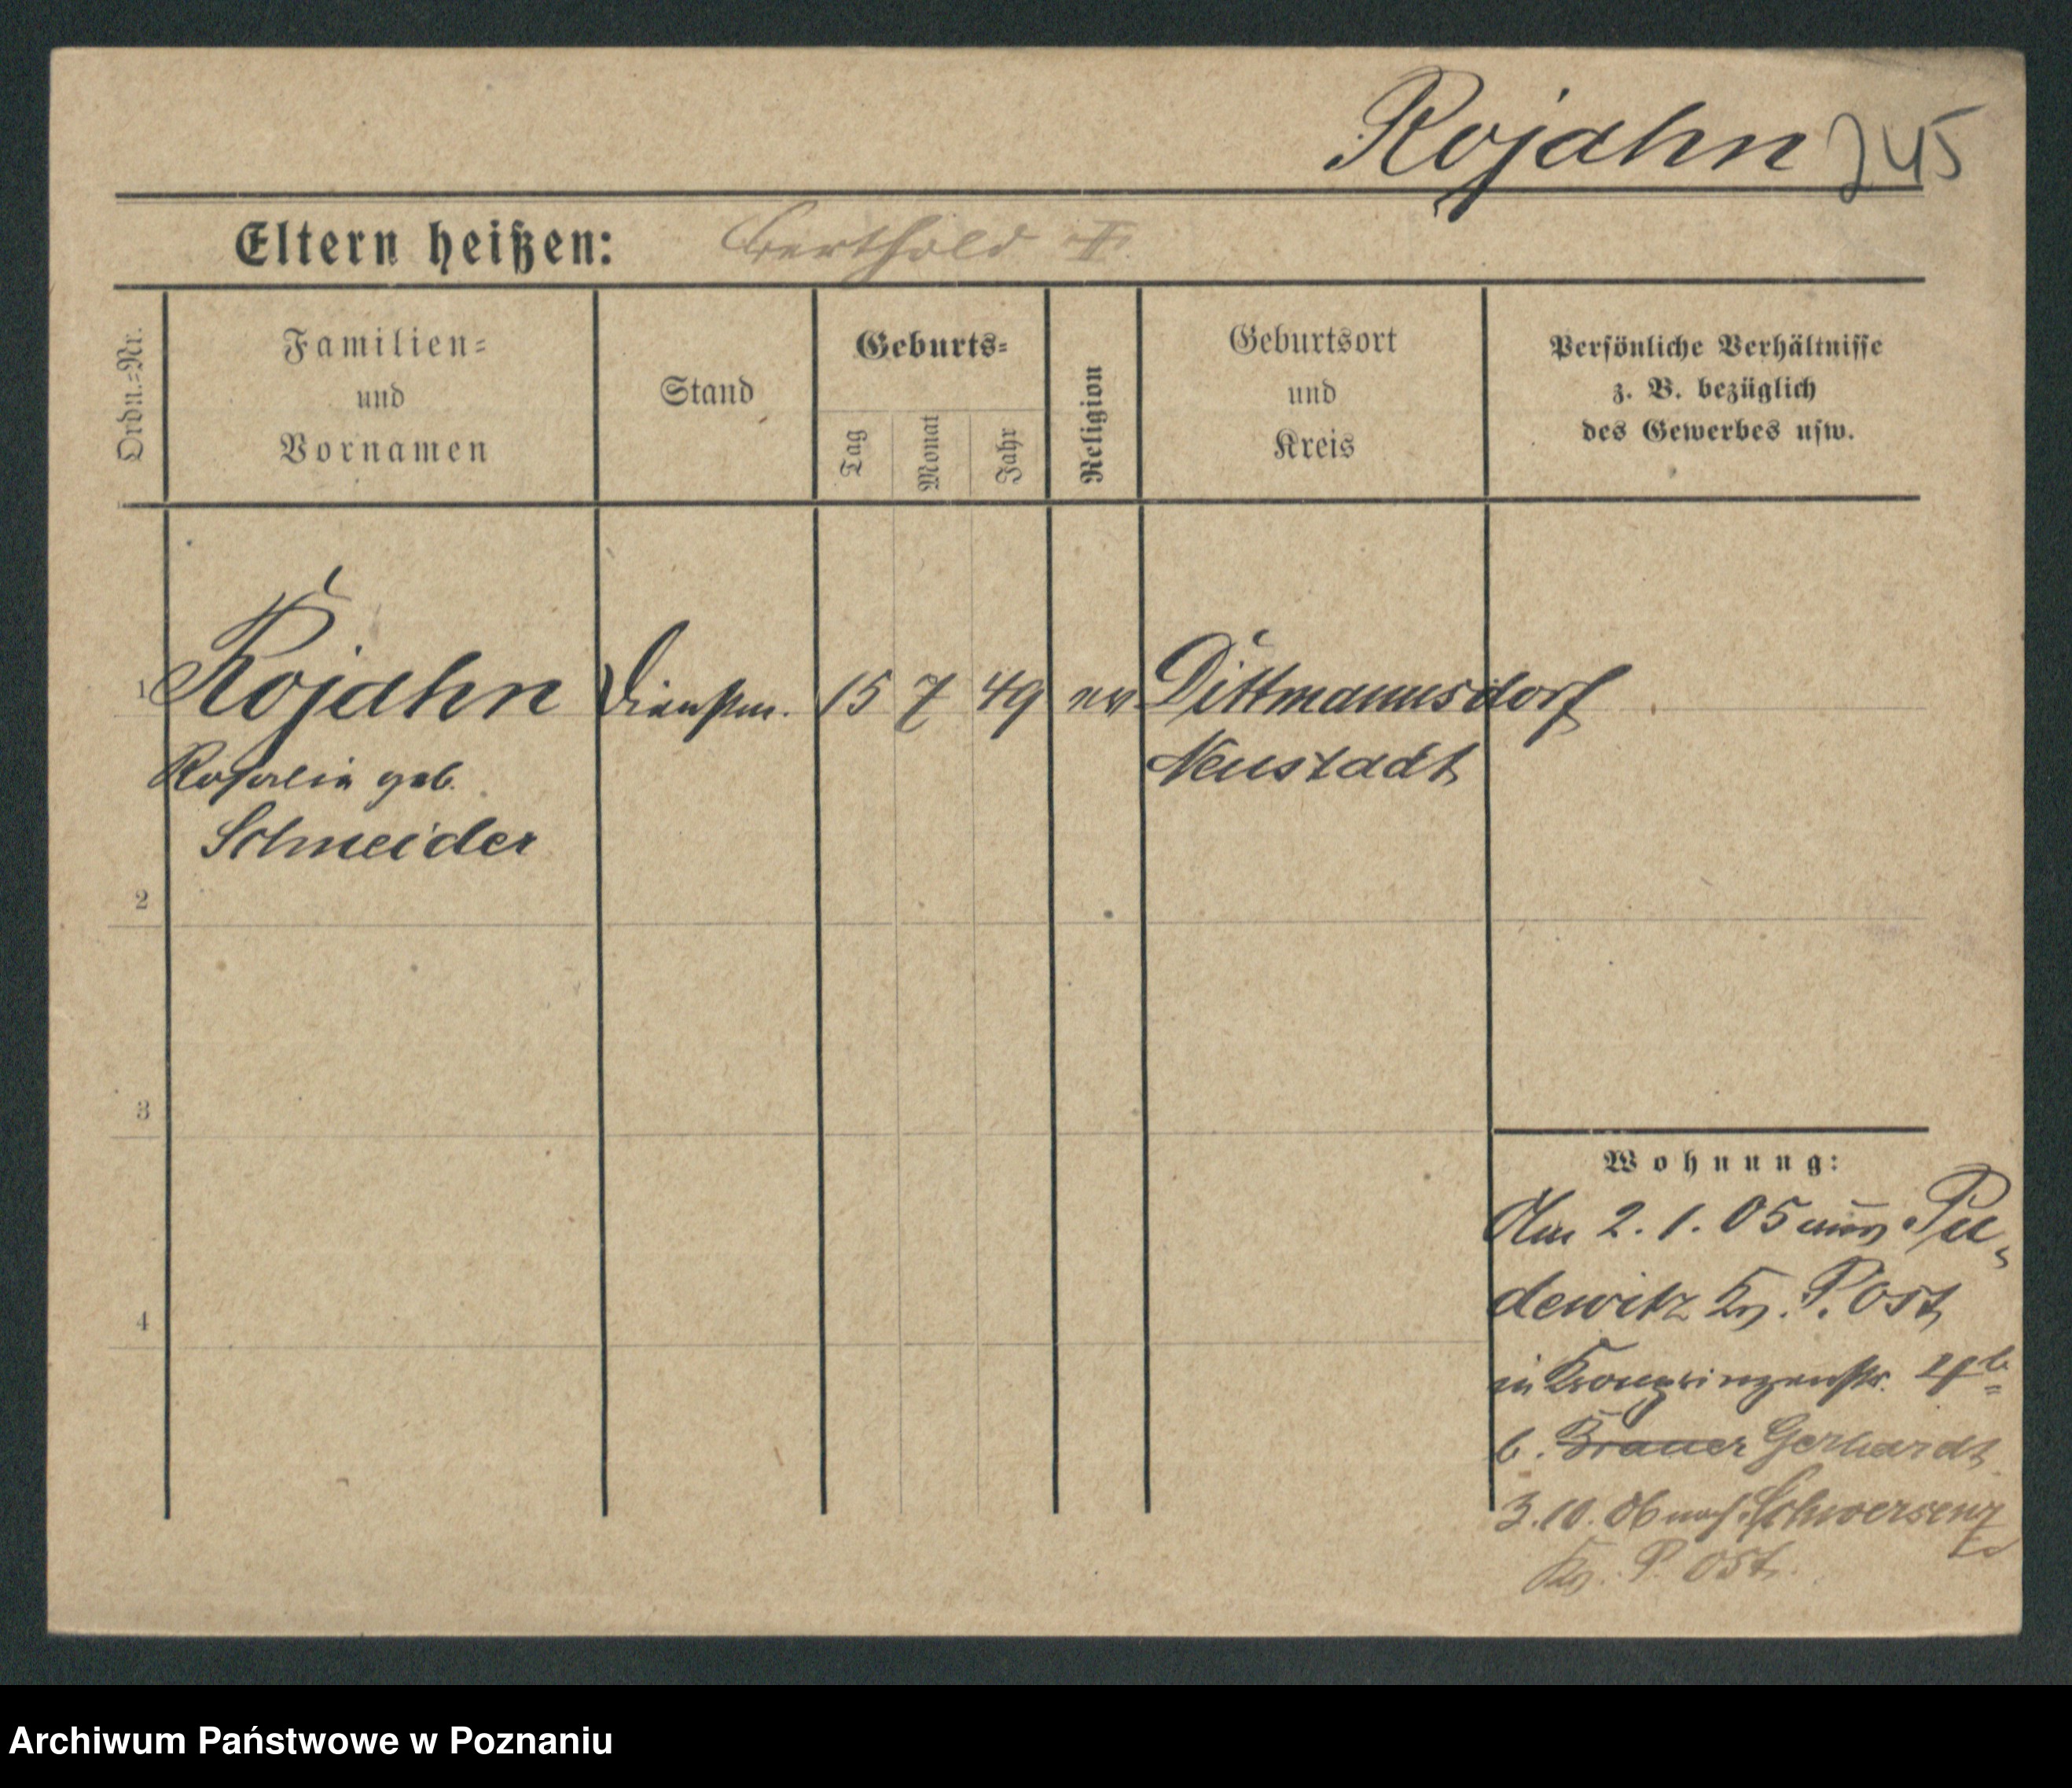 Rojahn 245
Eltern heißen: Berthold
Ordn.-Nr.
Familien-
und
Vornamen
Stand
Geburts-
Tag
Monat
Jahr
Religion
Geburtsort
und
Kreis
Persönliche Verhältnisse
z. B. bezüglich
des Gewerbes usw.
1 Rojahn Dienstm. 15 7 49 ev. Dittmannsdorf
Rosalie geb. Neustadt
Schneider
2
3
4
Wohnung:
Am 2. 1. 05 aus Pu-
dewitz Kr. P. Ost
in Kronprinzenstr.
b. Brauer Gerhardt
3. 10. 06 nach Schwersenz
Kr. P. Ost.
Archiwum Państwowe w Poznaniu